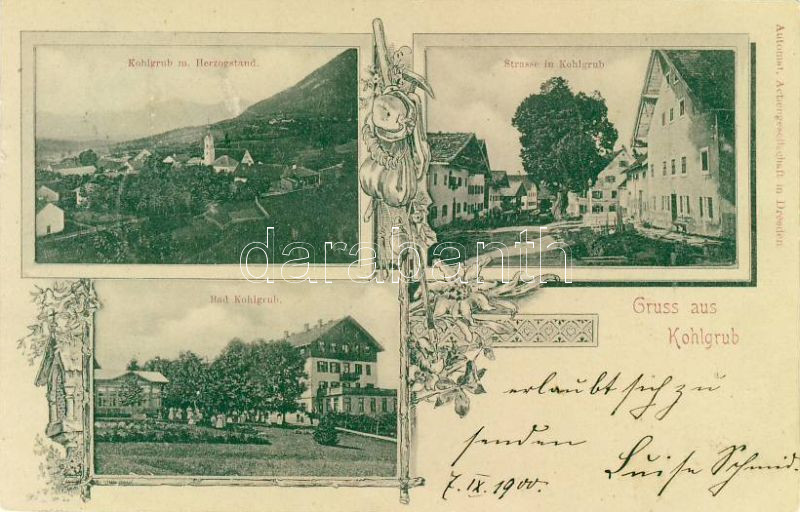 Kohlgrub m. Herzogstand.
Strasse in Kohlgrub
Automat, Actiengesellschaft in Dresden.
darabanth
Bad Kohlgrub.
Gruss aus
Kohlgrub
erlaubt sich zu
senden Luise Schmid.
7.IX.1900.